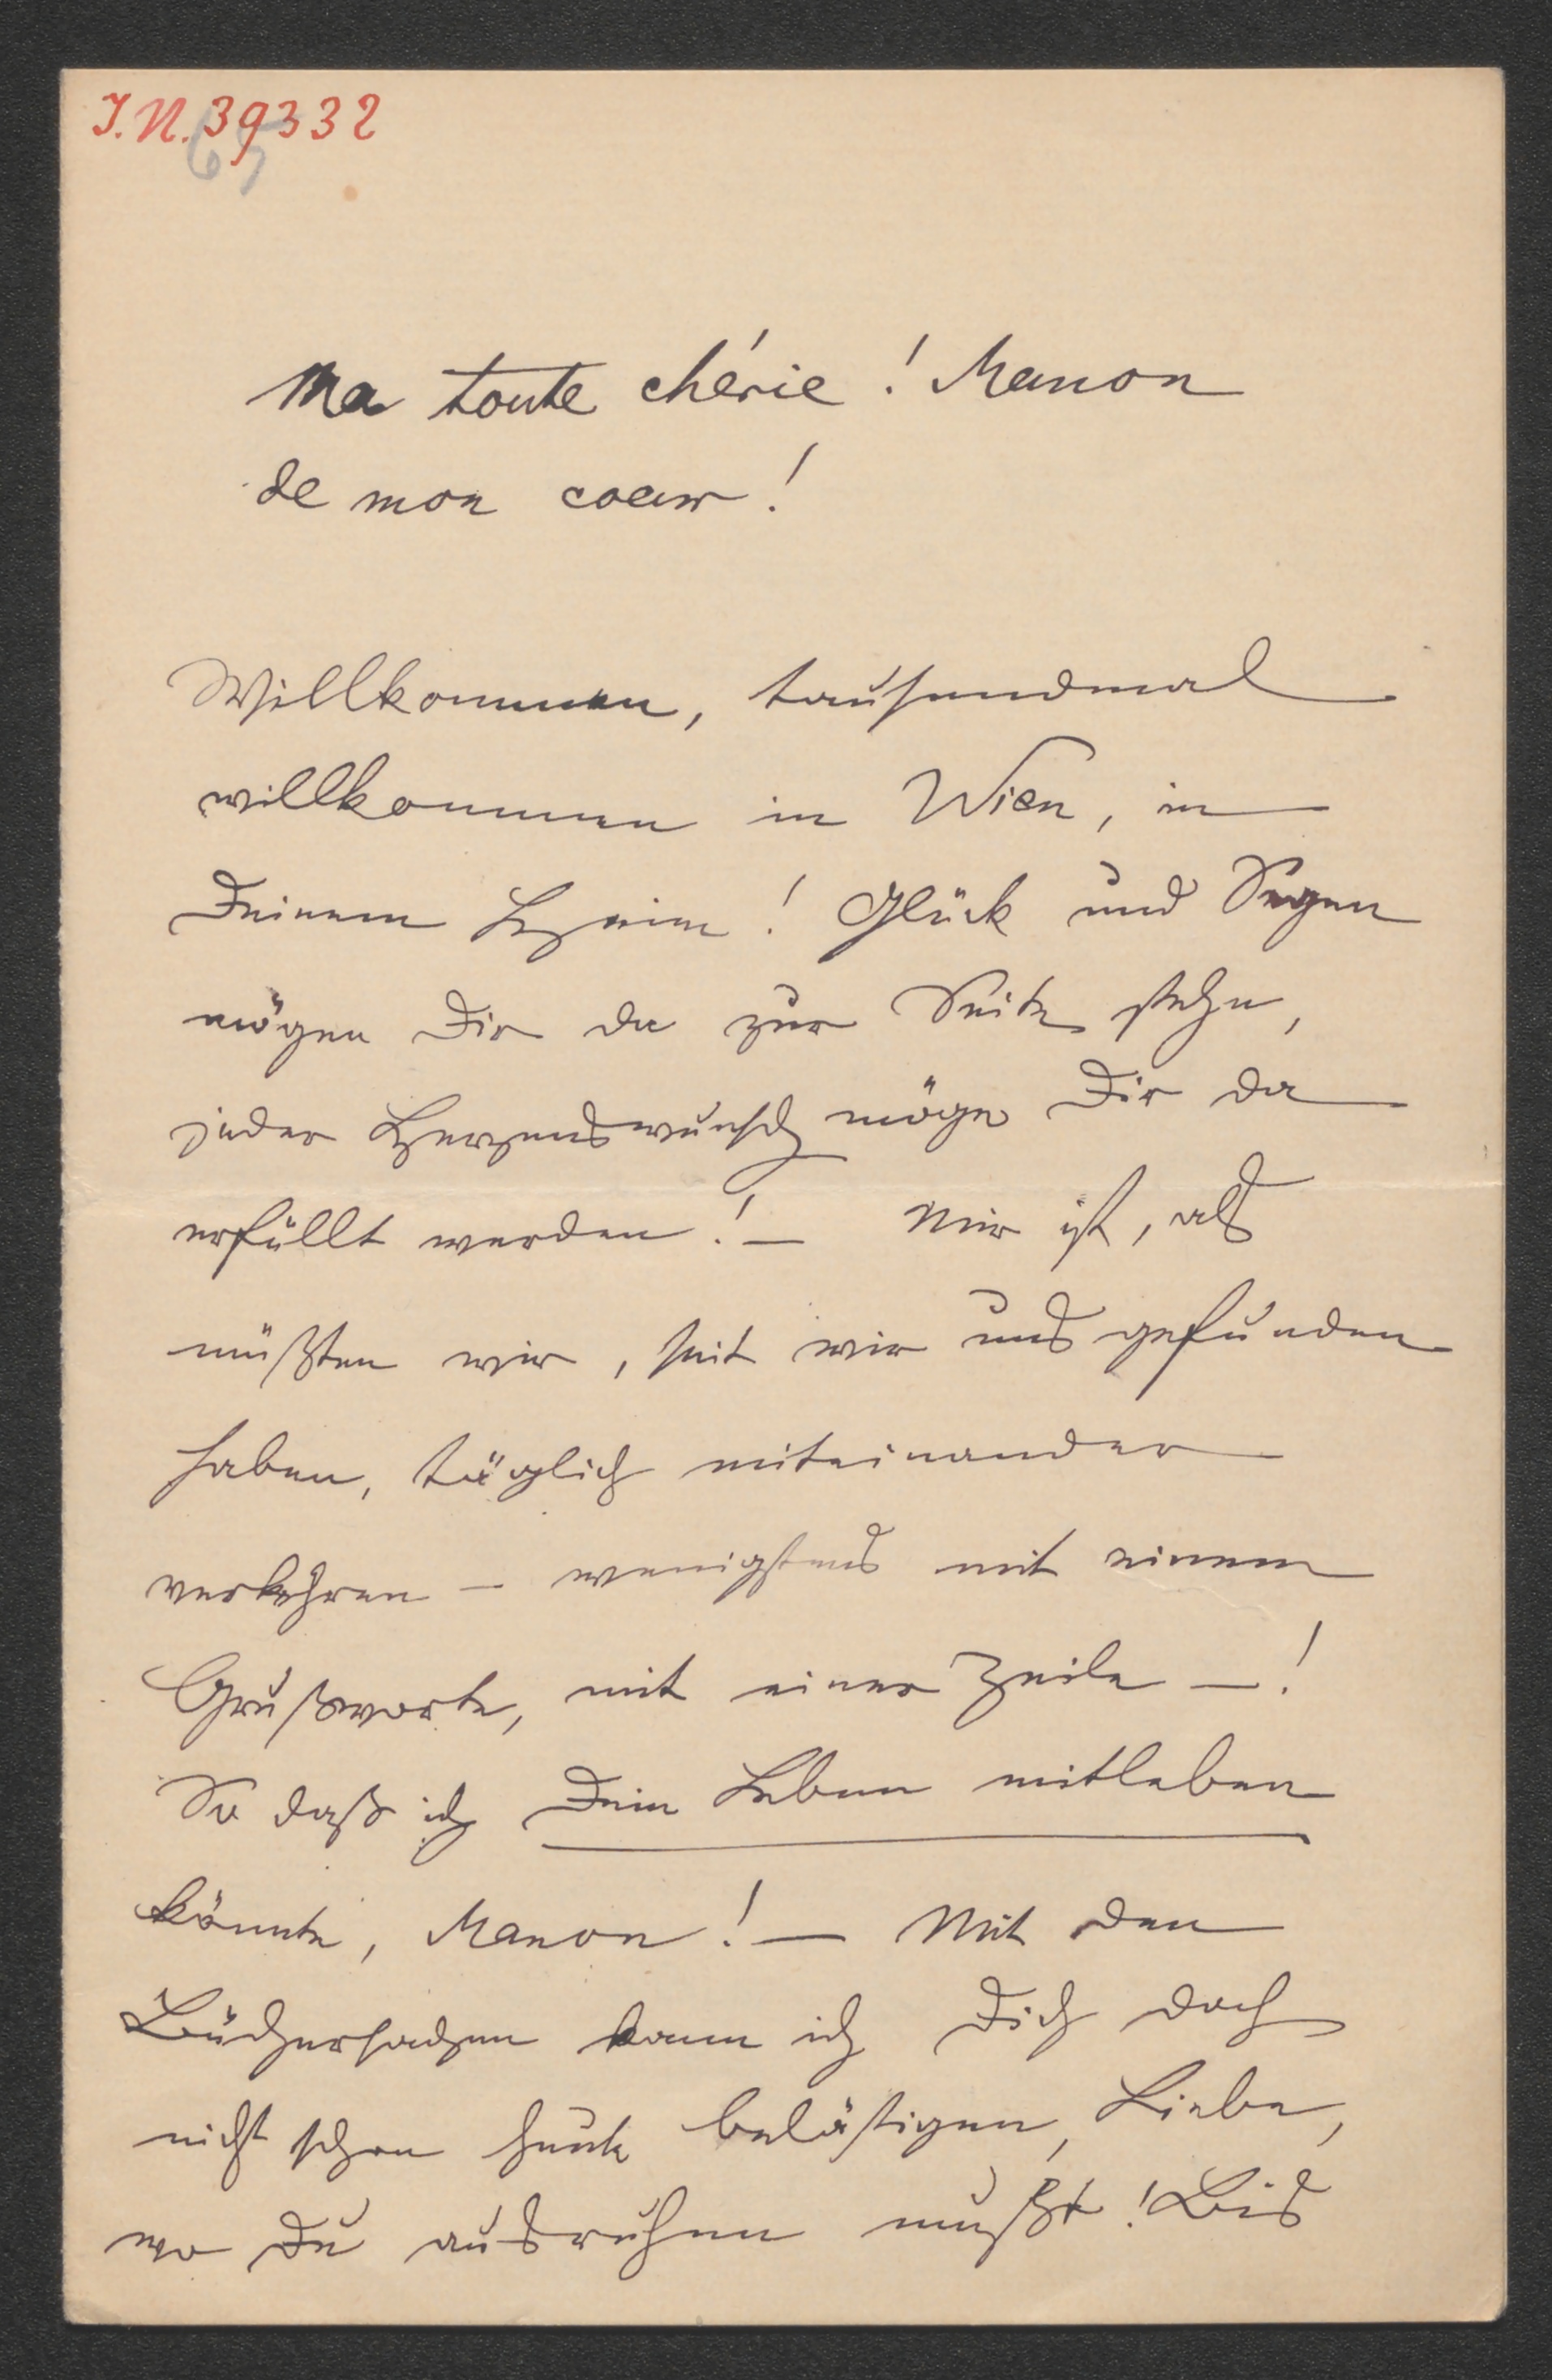 J.N. 39332
65
Ma toute chérie! Manon
de mon coeur!
Willkommen, tausendmal
willkommen in Wien, in
Deinem Heim! Glück und Segen
mögen Dir da zur Seite stehn,
jeder Herzenswunsch möge Dir da
erfüllt werden! — Mir ist, als
müßten wir, seit wir uns gefunden
haben, täglich miteinander
verkehren — wenigstens mit einem
Grußworte, mit einer Zeile —!
So daß ich Dein Leben mitleben
könnte, Manon! — Mit den
Büchersachen kann ich Dich doch
nicht schon heute belästigen, Liebe,
wo Du ausruhen mußt! Bis